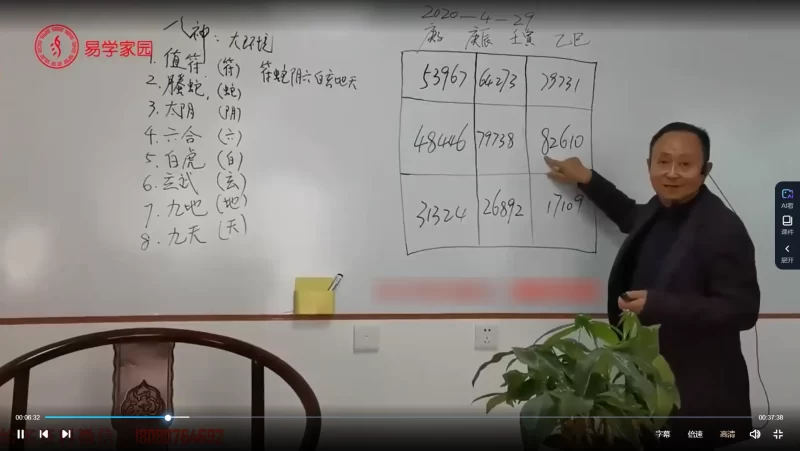 易学家园
八神：大环境
1. 值符 (符) 符蛇阴六白玄地天
2. 螣蛇 (蛇)
3. 太阴 (阴)
4. 六合 (六)
5. 白虎 (白)
6. 玄武 (玄)
7. 九地 (地)
8. 九天 (天)
2020-4-29
庚子 庚辰 壬寅 乙巳
53967 64273 79731
48446 79738 82610
31324 26892 17109
AI看
课件
展开
00:06:32
00:37:38
字幕 倍速 高清